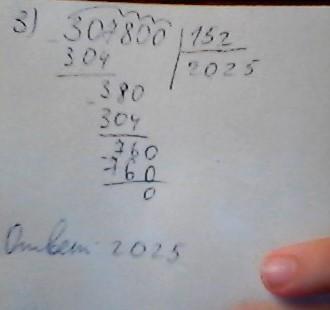 3) 307800 | 152
- 304 | 2025
- 380
304
- 760
- 760
0
Ответ: 2025